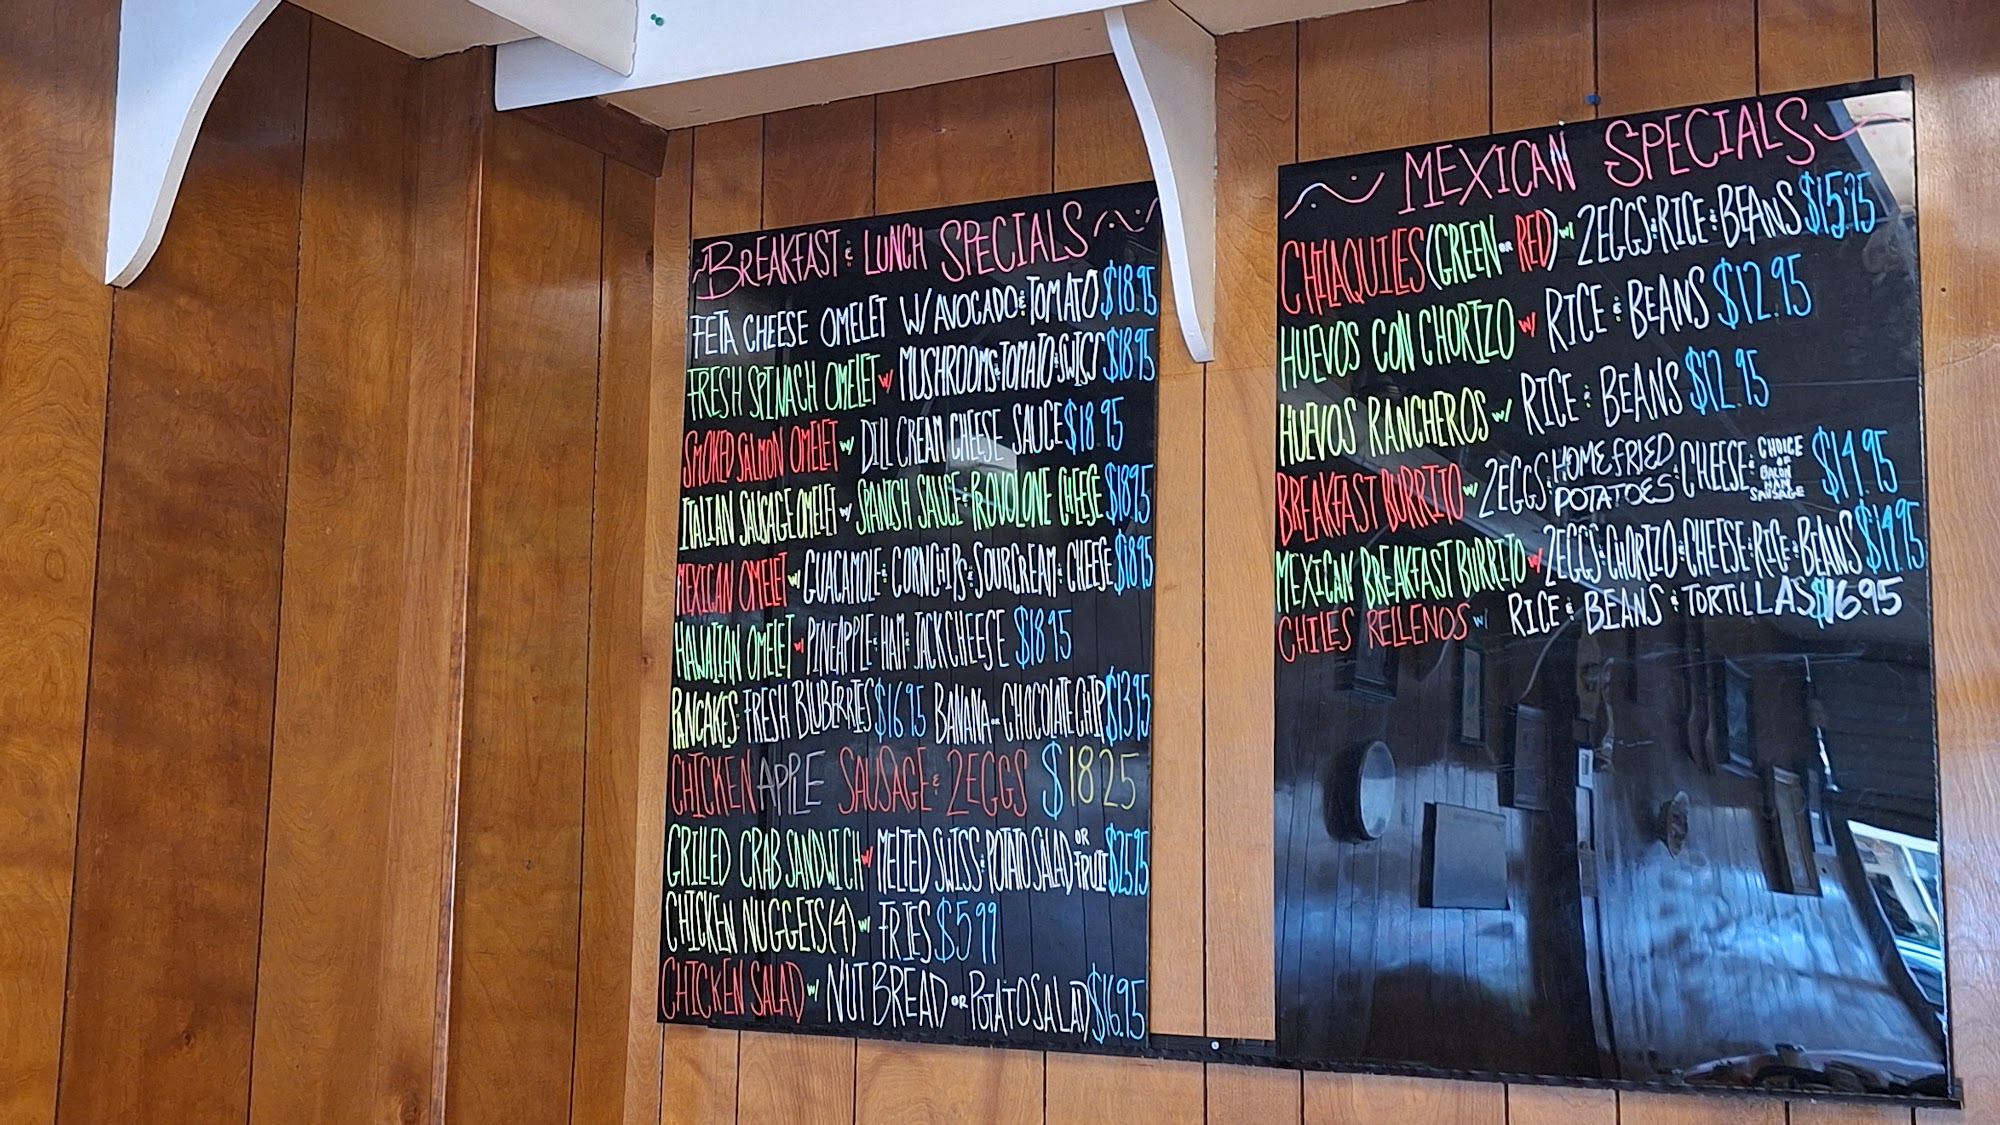 BREAKFAST & LUNCH SPECIALS
FETA CHEESE OMELET W/ AVOCADO & TOMATO $18.95
FRESH SPINACH OMELET W/ MUSHROOMS & TOMATO & SWISS $18.95
SMOKED SALMON OMELET W/ DILL CREAM CHEESE SAUCE $18.95
ITALIAN SAUSAGE OMELET W/ SPANISH SAUCE & PROVOLONE CHEESE $18.95
MEXICAN OMELET W/ GUACAMOLE & CORNCHIPS & SOURCREAM & CHEESE $18.95
HAWAIIAN OMELET W/ PINEAPPLE & HAM & JACK CHEESE $18.95
PANCAKES: FRESH BLUBERRIES $16.95 BANANA OR CHOCOLATE CHIP $13.95
CHICKEN APPLE SAUSAGE & 2EGGS $18.25
GRILLED CRAB SANDWICH W/ MELTED SWISS & POTATO SALAD OR FRUIT $25.75
CHICKEN NUGGETS (4) W/ FRIES $5.99
CHICKEN SALAD W/ NUT BREAD OR POTATO SALAD $16.95
MEXICAN SPECIALS
CHILAQUILES (GREEN OR RED) W/ 2EGGS & RICE & BEANS $15.75
HUEVOS CON CHORIZO W/ RICE & BEANS $12.95
HUEVOS RANCHEROS W/ RICE & BEANS $12.95
BREAKFAST BURRITO W/ 2EGGS & HOME FRIED POTATOES & CHEESE & CHOICE OF BACON HAM SAUSAGE $14.95
MEXICAN BREAKFAST BURRITO W/ 2EGGS & CHORIZO & CHEESE & RICE & BEANS $14.95
CHILES RELLENOS W/ RICE & BEANS & TORTILLAS $16.95